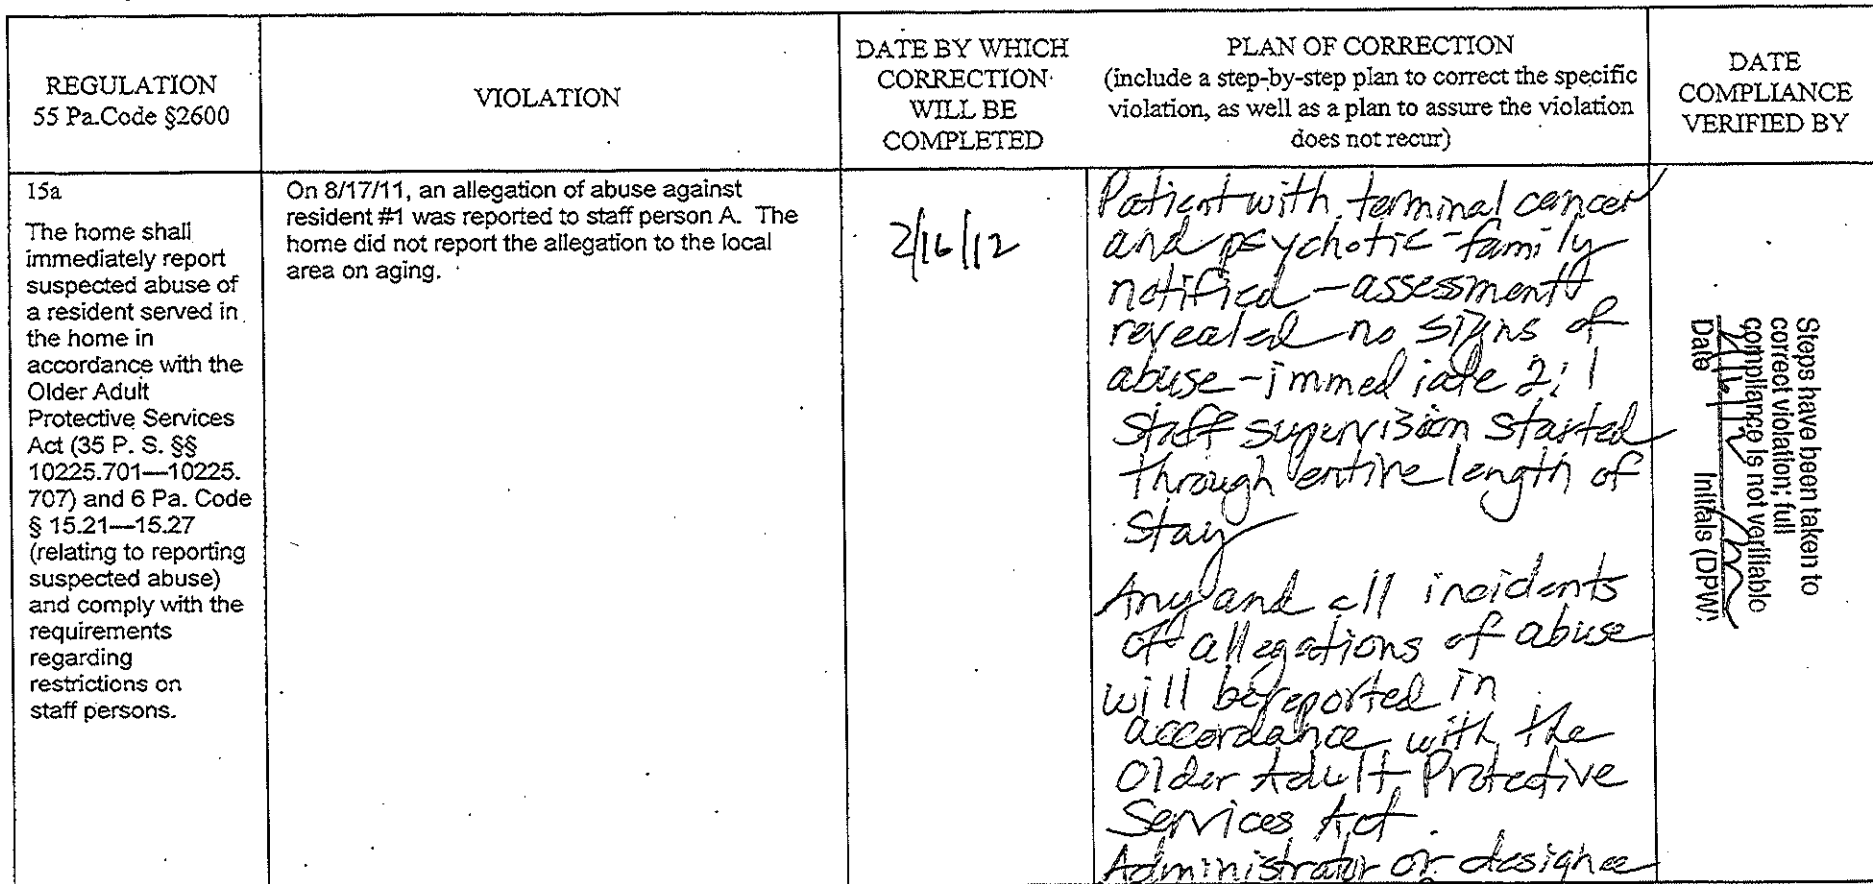 REGULATION
55 Pa.Code §2600
VIOLATION
DATE BY WHICH
CORRECTION
WILL BE
COMPLETED
PLAN OF CORRECTION
(include a step-by-step plan to correct the specific
violation, as well as a plan to assure the violation
does not recur)
DATE
COMPLIANCE
VERIFIED BY
15a
The home shall
immediately report
suspected abuse of
a resident served in
the home in
accordance with the
Older Adult
Protective Services
Act (35 P. S. §§
10225.701—10225.
707) and 6 Pa. Code
§ 15.21—15.27
(relating to reporting
suspected abuse)
and comply with the
requirements
regarding
restrictions on
staff persons.
On 8/17/11, an allegation of abuse against
resident #1 was reported to staff person A. The
home did not report the allegation to the local
area on aging.
2/16/12
Patient with terminal cancer
and psychotic - family
notified - assessment
revealed no signs of
abuse - immediate 2:1
staff supervision started
through entire length of
stay
Any and all incidents
of allegations of abuse
will be reported in
accordance with the
Older Adult Protective
Services Act.
Administrator or designee
Steps have been taken to
correct violation; full
compliance is not verifiable
Date Initials (DPW)